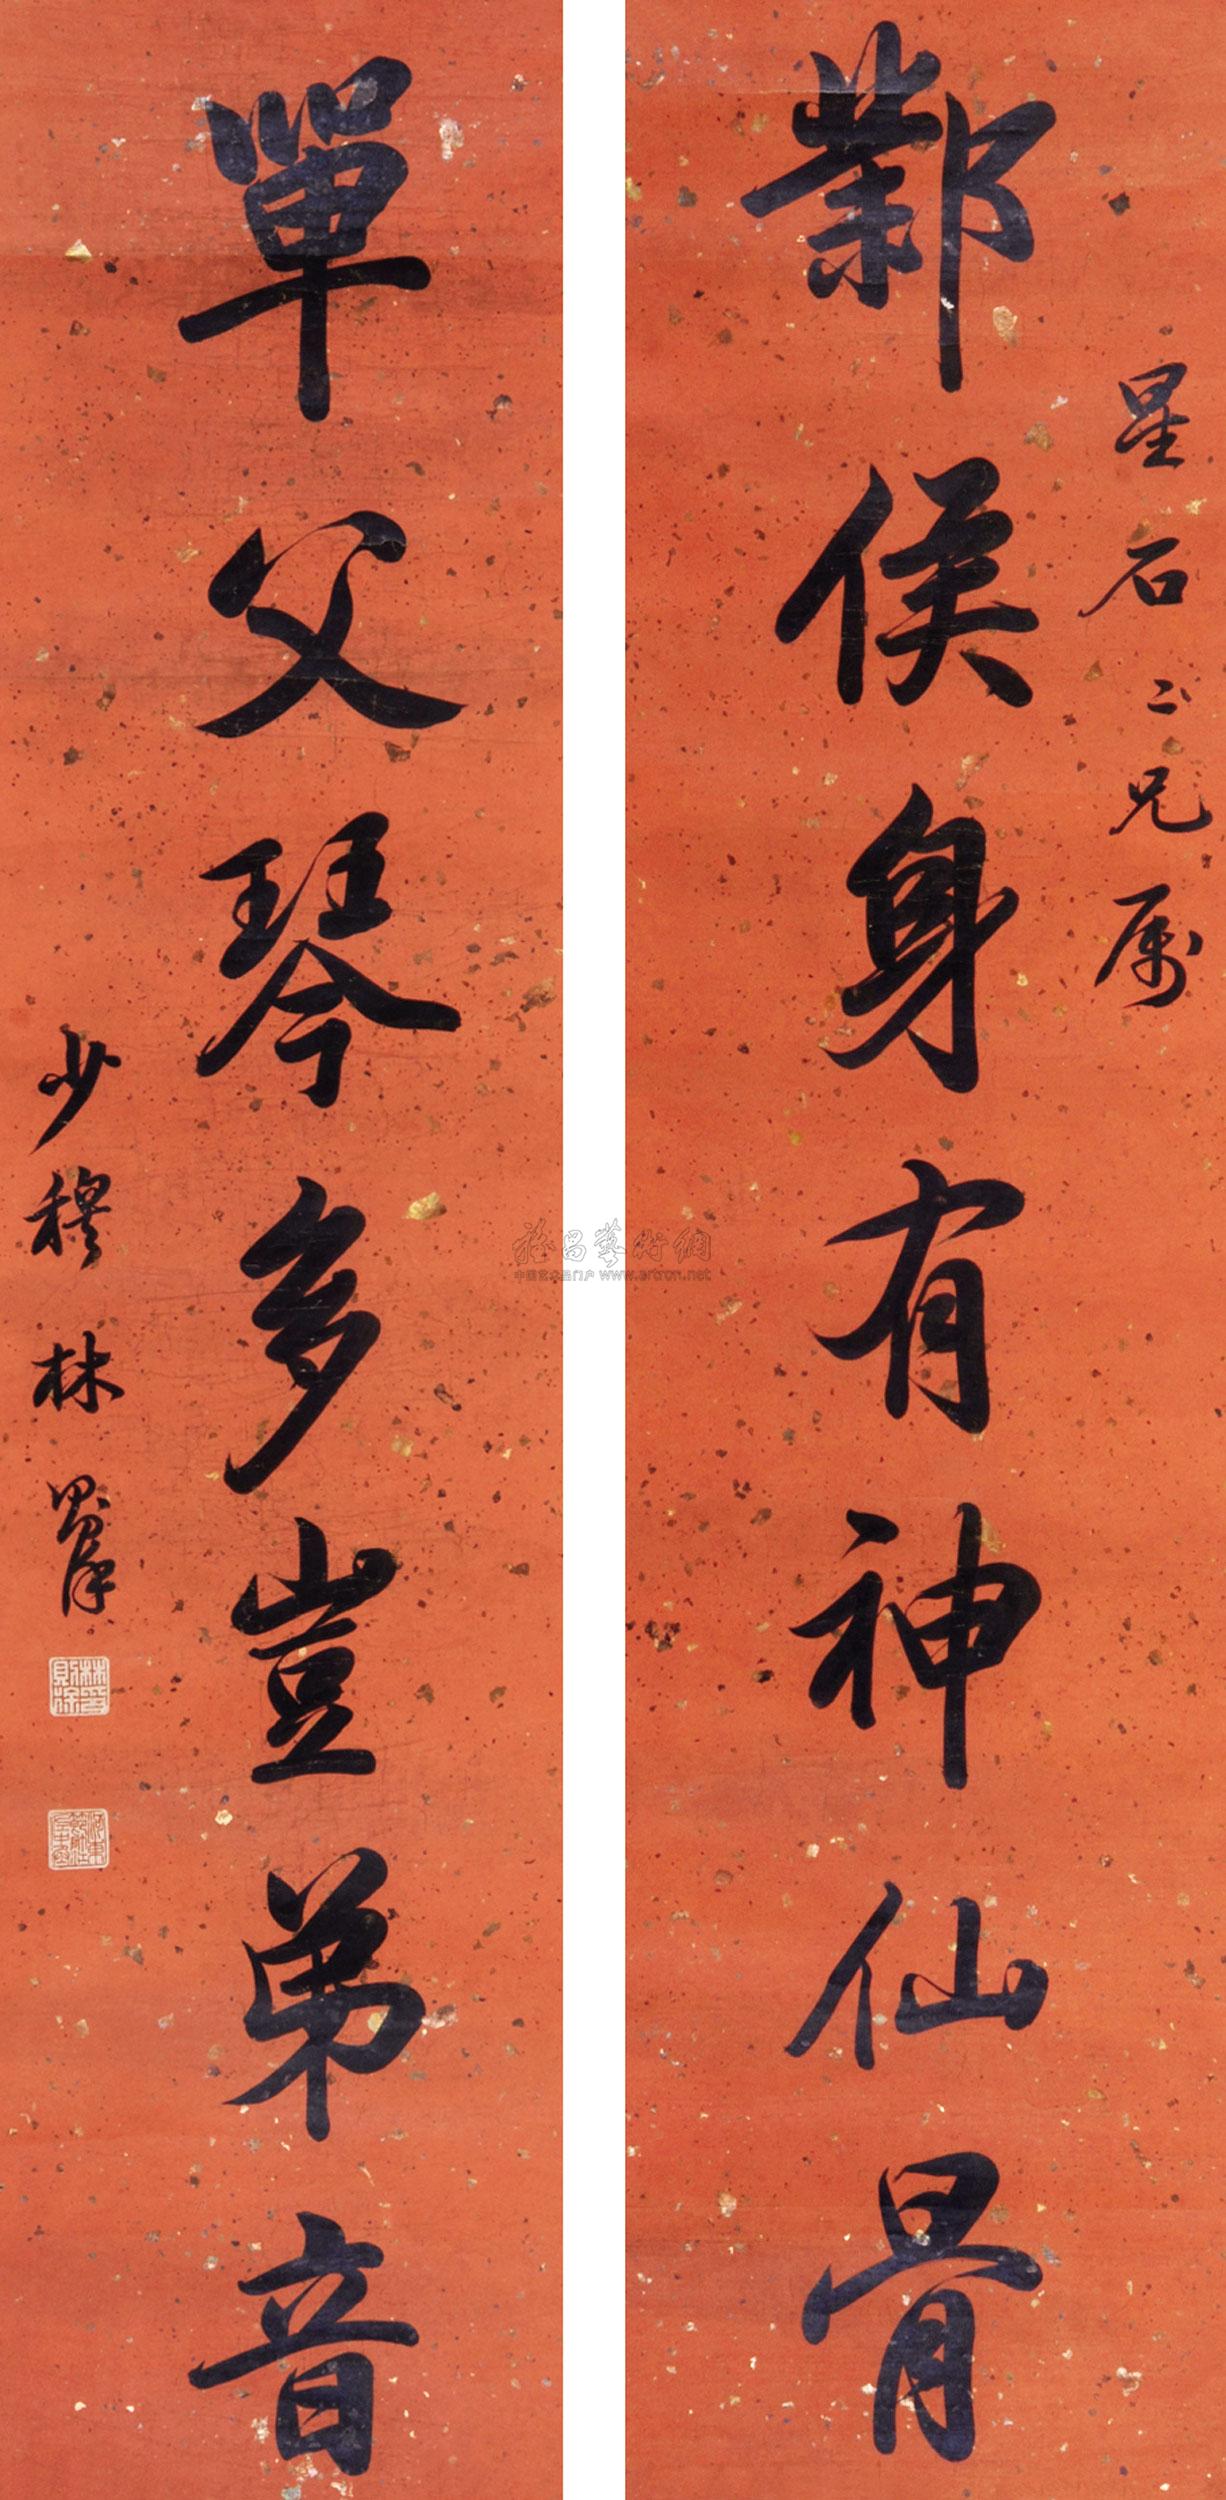 星石二兄属
鄴侯身有神仙骨
單父琴多豈弟音
少穆林則徐
雅昌藝術網
中国艺术品门户 www.artron.net